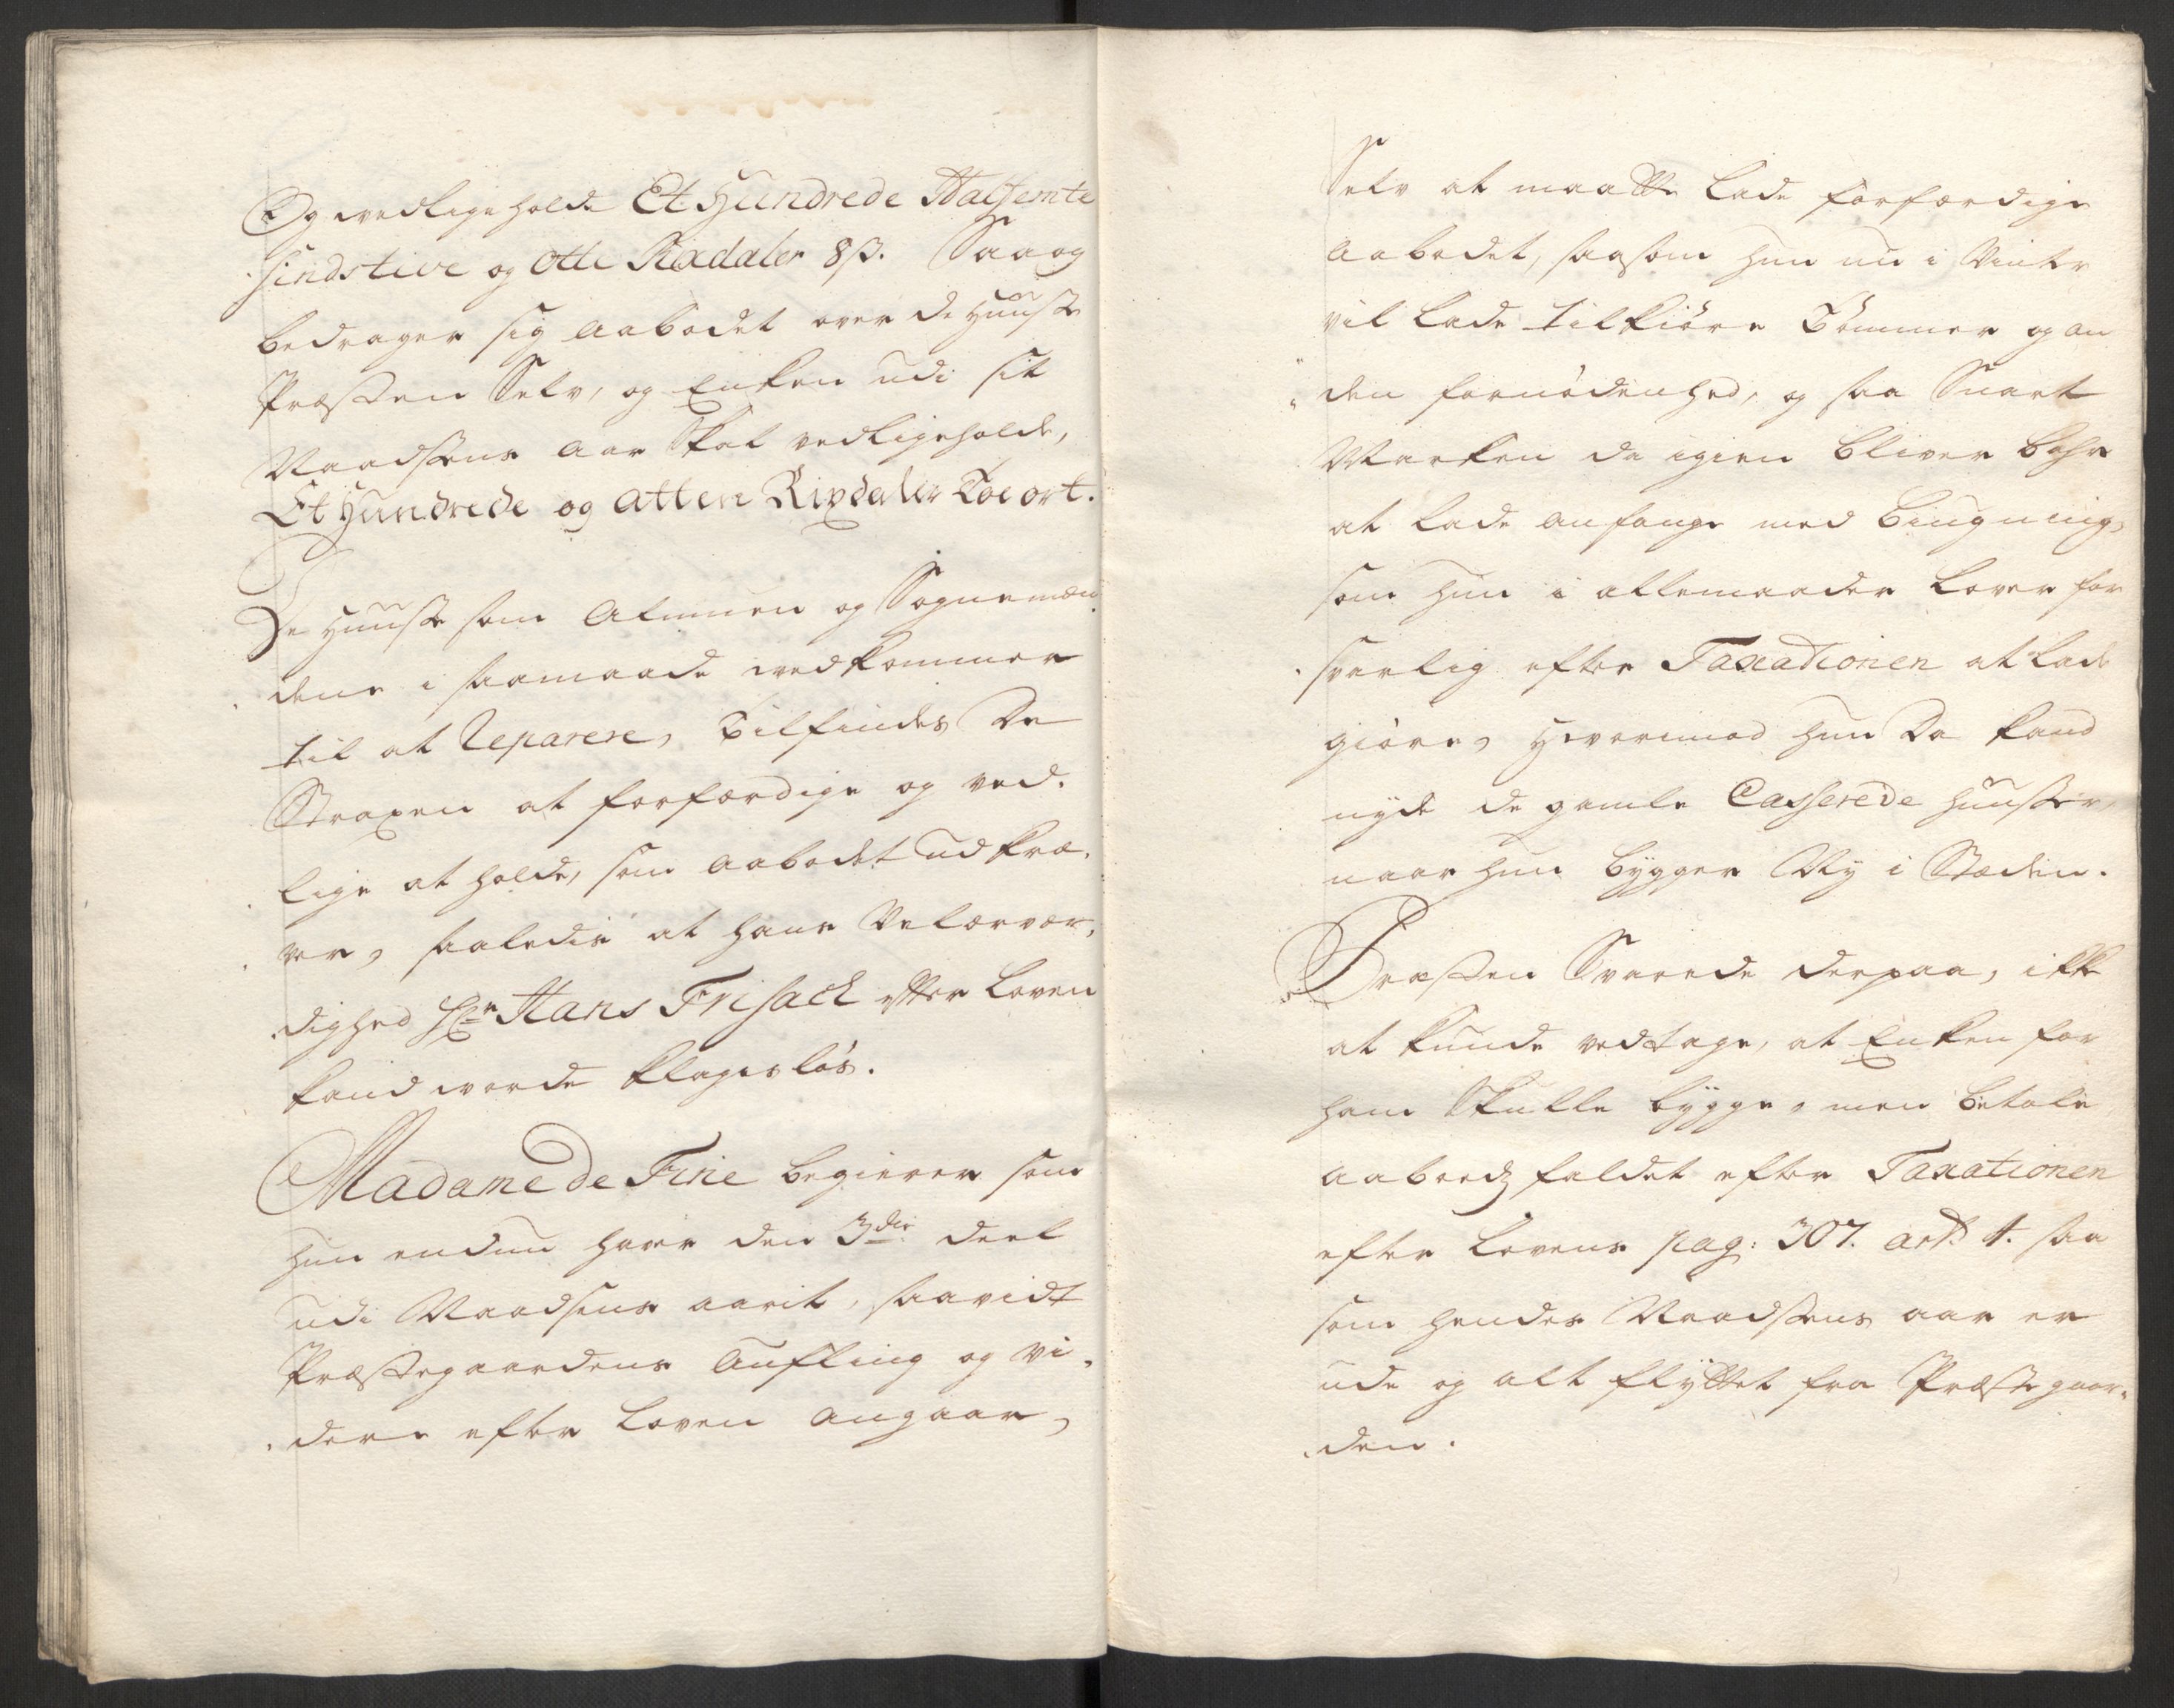 Og vedligeholde Et Hundrede Halfemte
sindstive og Otte Rixdaler 8 ß. Saa og
bedrager sig Aabodet over de Huuse
Præsten Selv, og Enken udi sit
Naadsens Aar Skal vedligeholde,
Et Hundrede og atten Rixdaler Toe ort.
De Huuse som Almuen og Sognemæn
dene i saamaade vedkommer
til at Reparere, Tilfindes De
Straxen at forfærdige og ved.
lige at holde, som Aabodet udkræ.
ver, saaledis at hans Velærvær,
dighed Hr Hans Frisach efter Loven
kand worde klagesløs.
Madame de Fine begierer som
hun endnu haver den 3die deel
udi Naadsens aarit, saavidt
Præstegaardens Aufling og vi,
dere efter Loven angaar,
Selv at maatte lade forfærdige
Aabodet, saasom hun nu i Vinter
vil lade tilkiøre Tømmer og an
den fornødenhed, og saa Snart
Marken da igien bliver bahr
at lade anfange med Biugning,
som hun i allemaader lover for
svarlig efter Taxationen at lade
giøre, Hvorimod hun Da kand
nyde de gamle Casserede Huuser,
naar hun bygger Ny i Stæden.
Præsten Svarede derpaa, ikke
at kunde vedtage, at Enken for
ham Skulle bygge, men betale
Aabodsfaldet efter Taxationen
efter Lovens pag: 307. art. 1. saa
som hendes Naadsens aar er
ude og alt flyttet fra Præstegaar,
den.